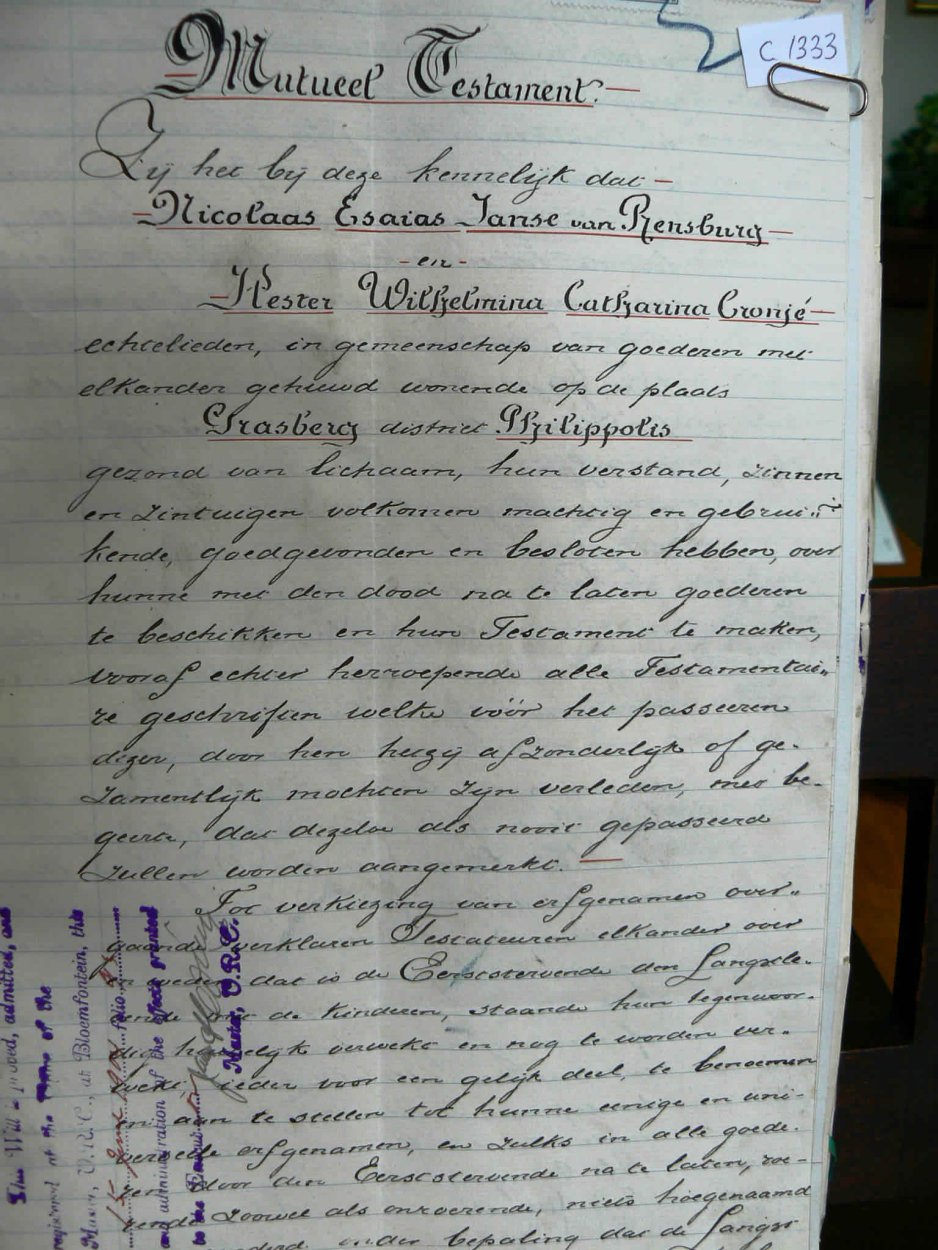 C 1333
Mutueel Testament.
Zij het bij deze kennelijk dat
Nicolaas Esaias Janse van Rensburg
- en -
Hester Wilhelmina Catharina Cronjé
echtelieden, in gemeenschap van goederen met
elkander gehuwd wonende op de plaats
Grasberg district Philippolis
gezond van lichaam, hun verstand, zinnen
en zintuigen volkomen machtig en gebrui-
kende, goedgevonden en besloten hebben, over
hunne met den dood na te laten goederen
te beschikken en hun Testament te maken,
vooraf echter herroepende alle Testamentai-
re geschriften welke vóór het passeeren
dezer, door hen hetzij afzonderlijk of ge-
zamentlijk mochten zijn verleden, met be-
geerte, dat dezelve als nooit gepasseerd
zullen worden aangemerkt.
Tot verkiezing van erfgenamen over-
gaande verklaren Testateuren elkander over
en weder dat is de Eerststervende den Langstle-
vende met de kinderen, staande hun tegenwoor-
dig huwelijk verwekt en nog te worden ver-
wekt ieder voor een gelijk deel, te benoemen
en aan te stellen tot hunne eenige en uni-
verseele erfgenamen, en zulks in alle goede-
ren door den Eerststervende na te laten, roe-
rende zoowel als onroerende, niets hoegenaamd
onder bepaling dat de Langst
This Will is proved, admitted, and
registered at the Office of the
Master, O.R.C., at Bloemfontein, this
folio
and administration of the effects granted
to the
Master, O.R.C.